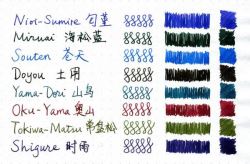 Nioi-Sumire 匂菫
Miruai 海松藍
Souten 蒼天
Doyou 土用
Yama-Dori 山鳥
Oku-Yama 奥山
Tokiwa-Matsu 常盤松
Shigure 時雨